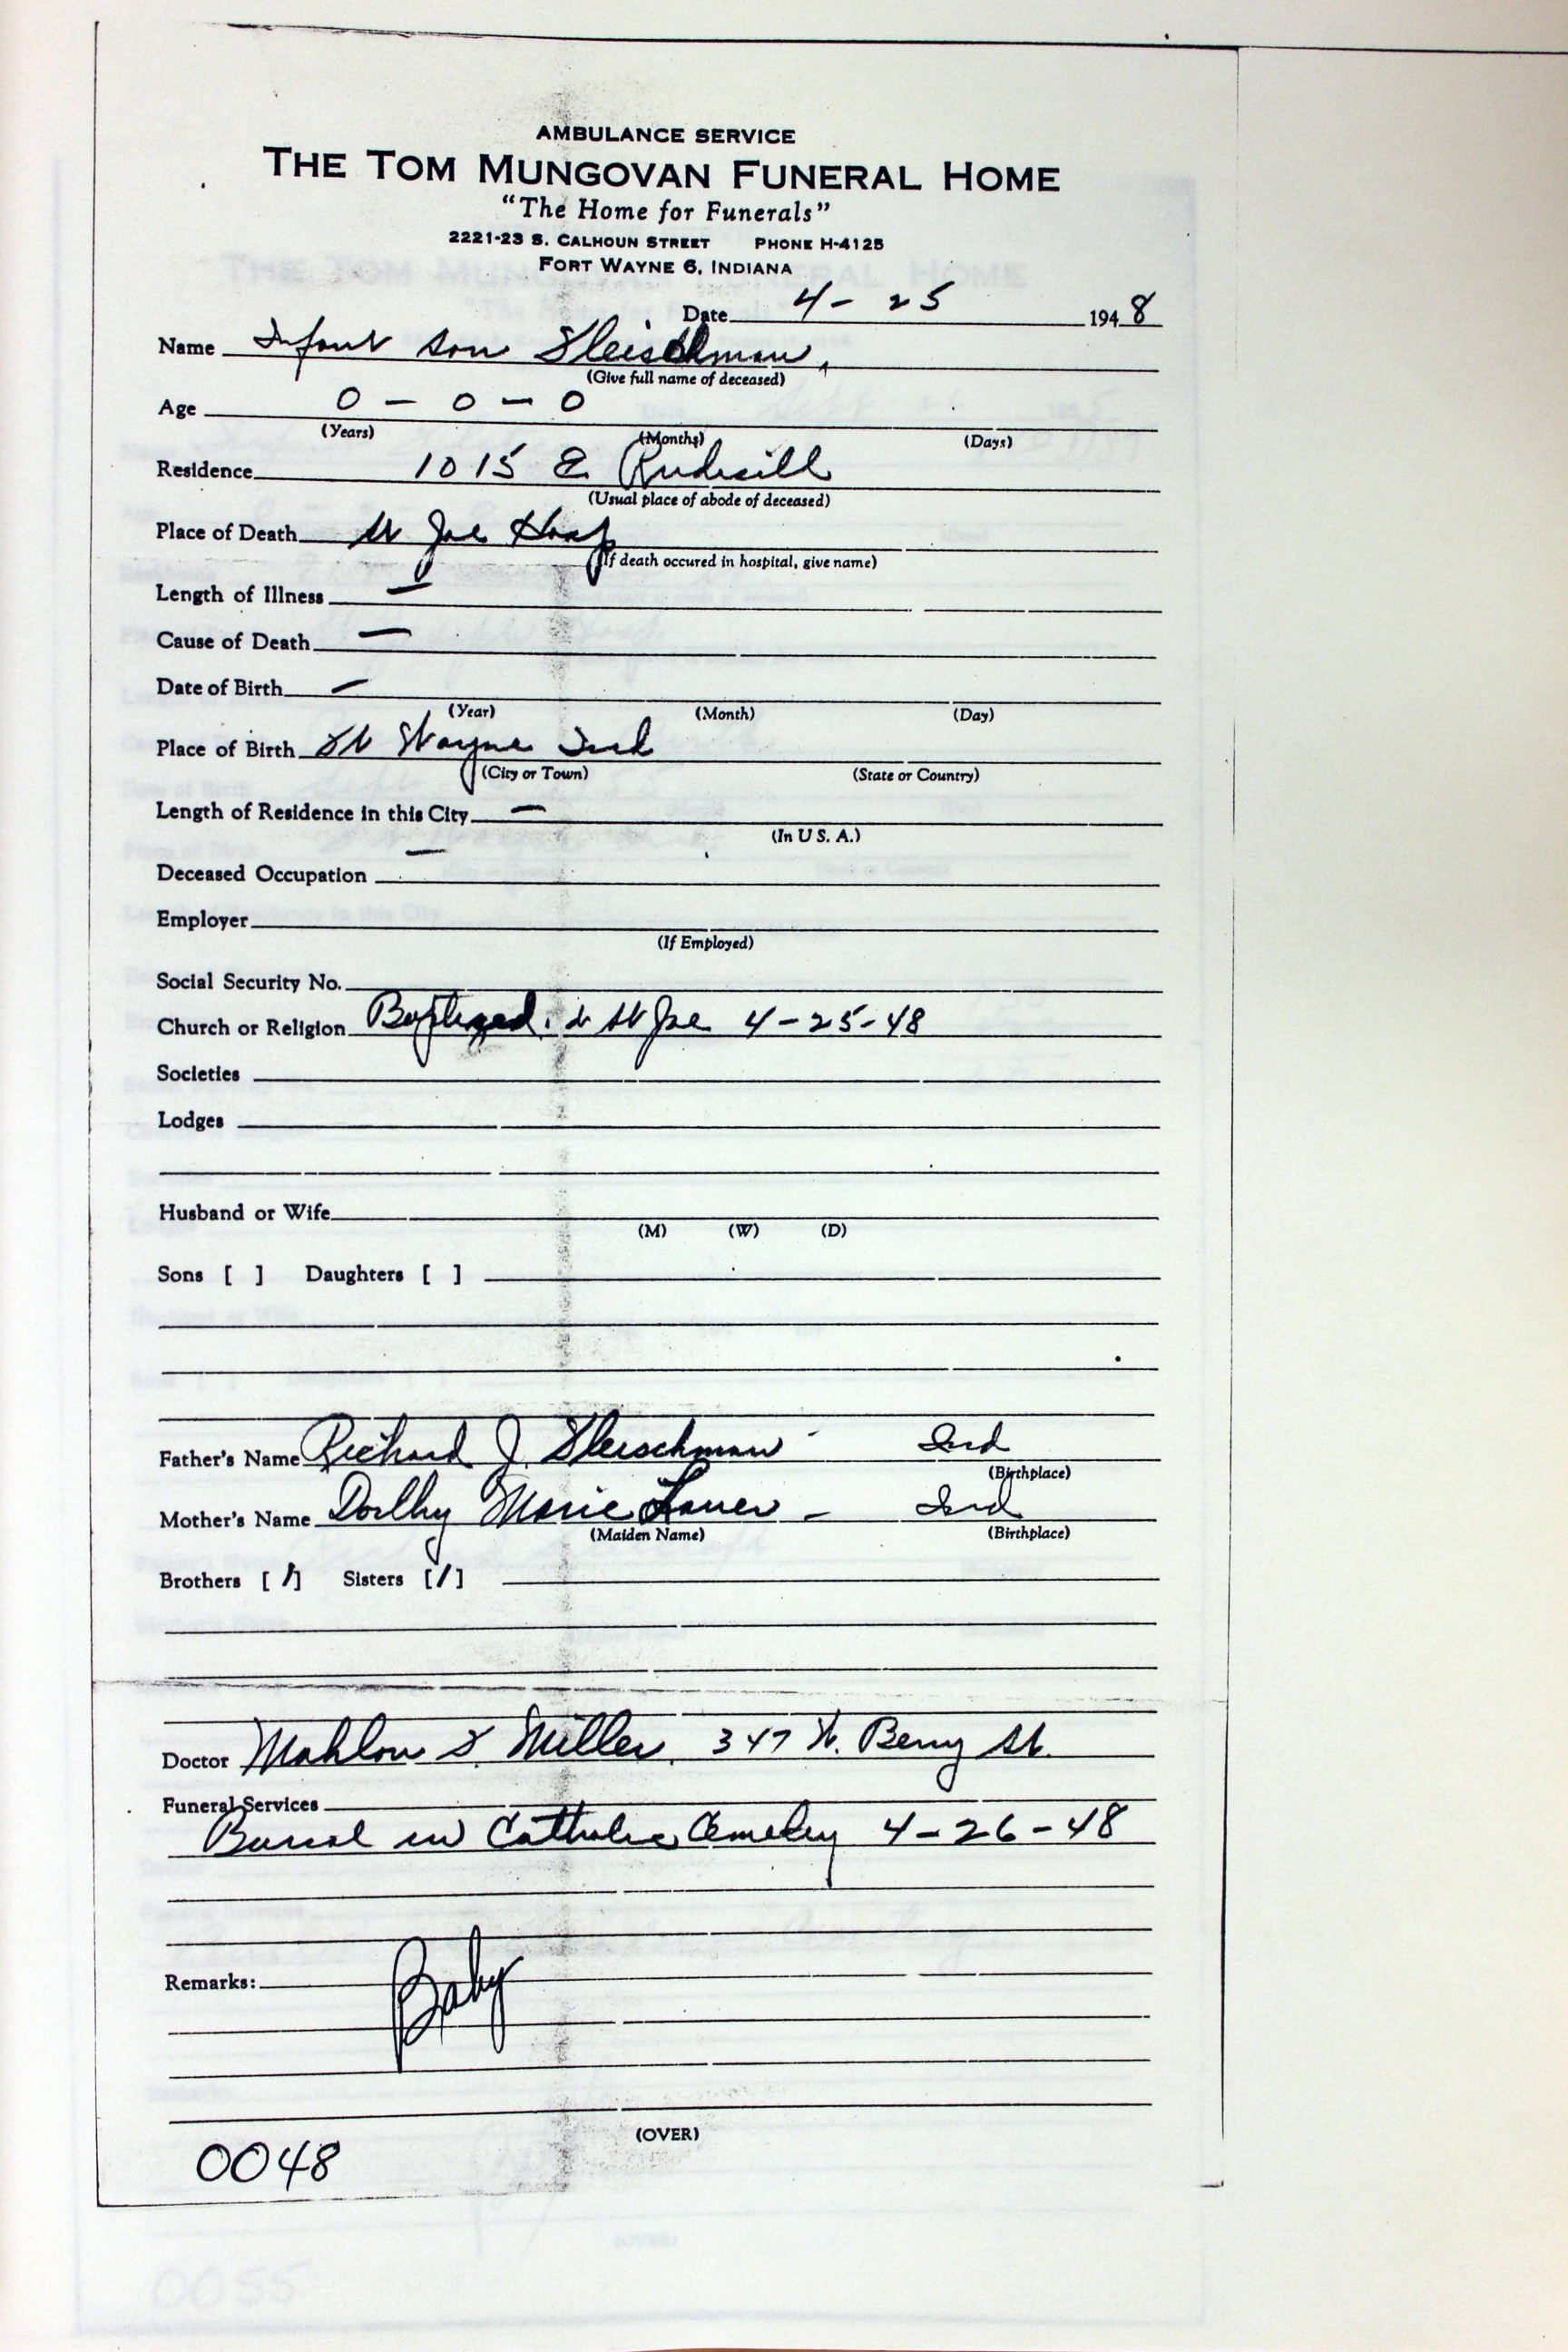 AMBULANCE SERVICE
THE TOM MUNGOVAN FUNERAL HOME
"The Home for Funerals"
2221-23 S. CALHOUN STREET PHONE H-4125
FORT WAYNE 6, INDIANA
Date 4 - 25 1948
Name Infant son Fleischman
(Give full name of deceased)
Age 0 - 0 - 0
(Years) (Months) (Days)
Residence 1015 E Rudisill
(Usual place of abode of deceased)
Place of Death St Joe Hosp
(If death occured in hospital, give name)
Length of Illness —
Cause of Death —
Date of Birth —
(Year) (Month) (Day)
Place of Birth Ft Wayne Ind
(City or Town) (State or Country)
Length of Residence in this City —
(In U S. A.)
Deceased Occupation —
Employer
(If Employed)
Social Security No.
Church or Religion Baptized. St Joe 4-25-48
Societies
Lodges
Husband or Wife
(M) (W) (D)
Sons [ ] Daughters [ ]
Father's Name Richard J. Fleischman - Ind
(Birthplace)
Mother's Name Dorthy Marie Lauer - Ind
(Maiden Name) (Birthplace)
Brothers [1] Sisters [1]
Doctor Mahlon F. Miller. 347 W. Berry St.
Funeral Services
Burial in Catholic Cemetery 4-26-48
Remarks: Baby
(OVER)
0048
0055